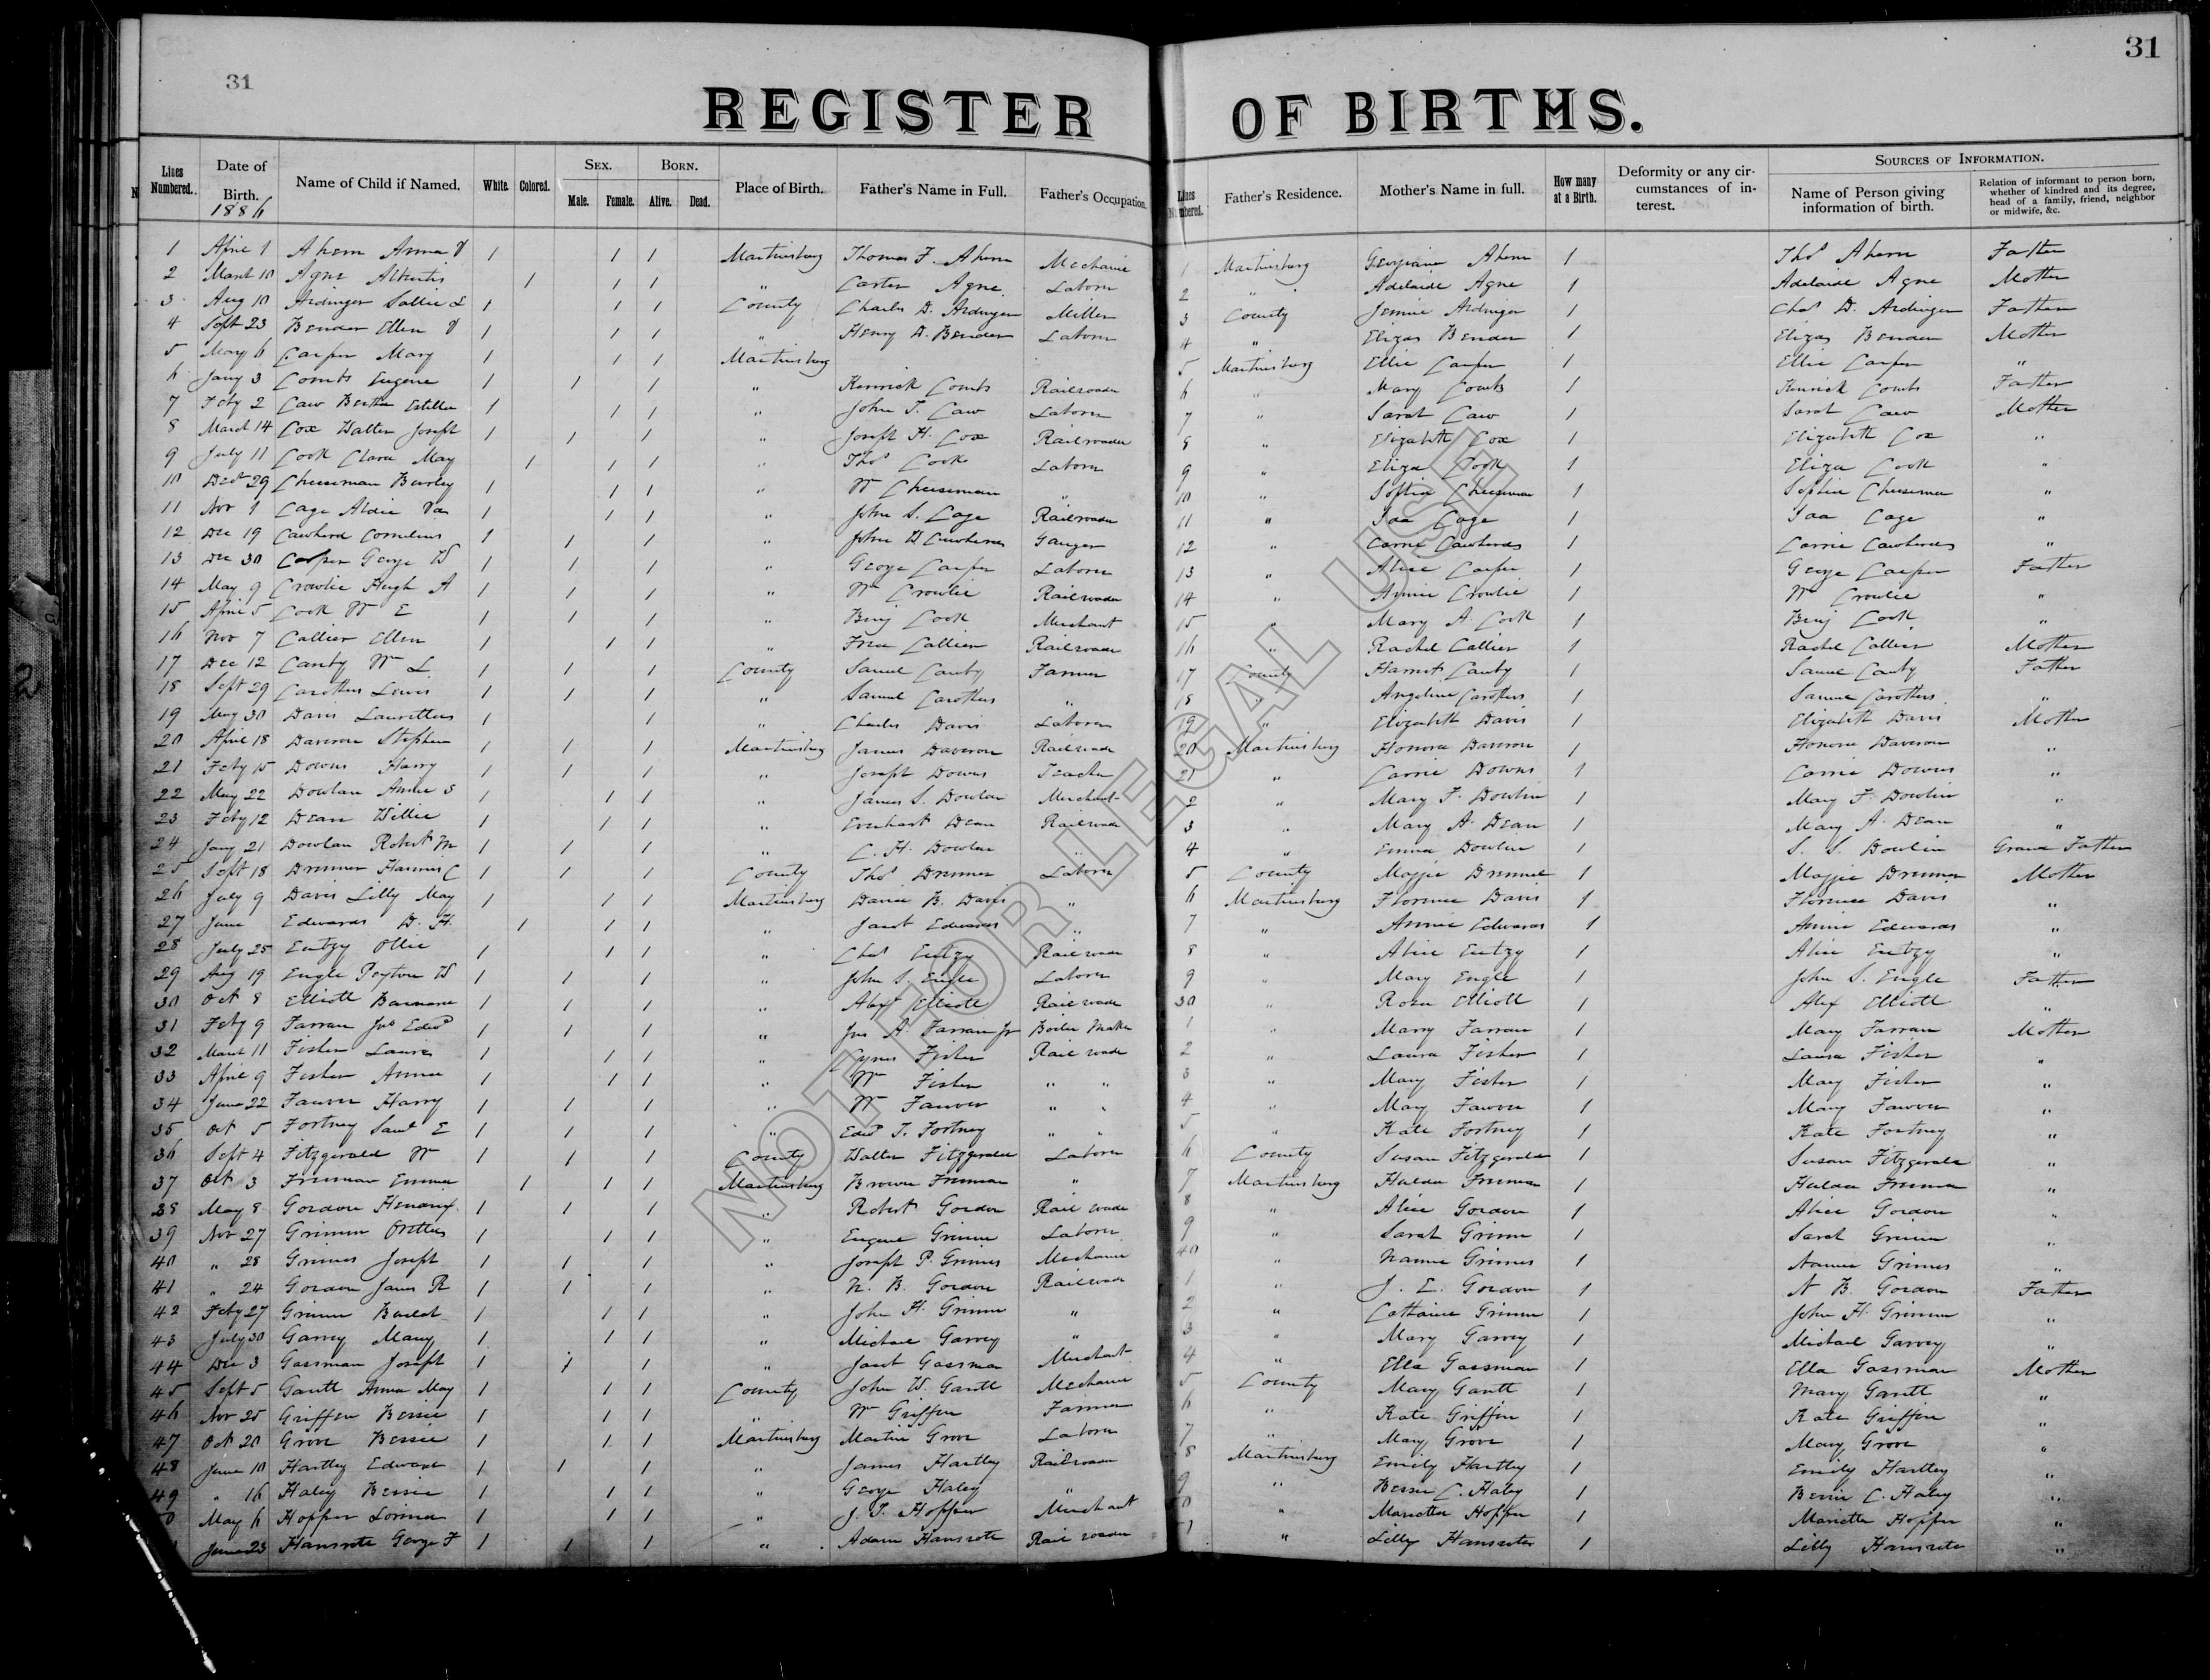 31
31
REGISTER OF BIRTHS.
Lines Numbered. Date of Birth. Name of Child if Named. White. Colored. Sex. Male. Female. Born. Alive. Dead. Place of Birth. Father's Name in Full. Father's Occupation. Lines Numbered. Father's Residence. Mother's Name in full. How many at a Birth. Deformity or any circumstances of interest. Sources of Information. Name of Person giving information of birth. Relation of informant to person born, whether of kindred and its degree, head of a family, friend, neighbor or midwife, &c.
1886
1 April 1 Ahern Anna 1 1 1 Martinsburg Thomas F. Ahern Mechanic 1 Martinsburg Georgiana Ahern 1 Thos Ahern Father
2 March 10 Agne 1 1 1 " Carter Agne Laborer 2 " Adelaide Agne 1 Adelaide Agne Mother
3 Aug 10 Ardinger Sallie L 1 1 1 County Charles D. Ardinger Miller 3 County Jennie Ardinger 1 Chas D. Ardinger Father
4 Sept 23 Bender Ellen 1 1 1 " Henry D. Bender Laborer 4 " Elizas Bender 1 Elizas Bender Mother
5 May 6 Carper Mary 1 1 1 Martinsburg 5 Martinsburg Ellie Carper 1 Ellie Carper "
6 Jany 3 Combs Eugene 1 1 1 " Combs Railroader 6 " Mary Combs 1 Combs Father
7 Feby 2 Caw Bertha Estella 1 1 1 " John T. Caw Laborer 7 " Sarah Caw 1 Sarah Caw Mother
8 March 14 Cox Walter Joseph 1 1 1 " Joseph H. Cox Railroader 8 " Elizabeth Cox 1 Elizabeth Cox "
9 July 11 Cook Clara May 1 1 1 " Thos Cook Laborer 9 " Eliza Cook 1 Eliza Cook "
10 Dec 29 Cheeseman 1 1 1 " Wm Cheeseman " 10 " Sophia Cheeseman 1 Sophia Cheeseman "
11 Nov 1 Cage 1 1 1 " John S. Cage Railroader 11 " Ida Cage 1 Ida Cage "
12 Dec 19 Cawherd Cornelius 1 1 1 " John W Cawherd Ganger 12 " Carrie Cawherd 1 Carrie Cawherd "
13 Dec 30 Carper George W 1 1 1 " George Carper Laborer 13 " Alice Carper 1 George Carper Father
14 May 9 Crowlie Hugh A 1 1 1 " Wm Crowlie Railroader 14 " Annie Crowlie 1 Wm Crowlie "
15 April 5 Cook Wm E 1 1 1 " Benj Cook Merchant 15 " Mary A. Cook 1 Benj Cook "
16 Nov 7 Collier Ellen 1 1 1 " Collier Railroader 16 " Rachel Collier 1 Rachel Collier Mother
17 Dec 12 Canby Wm L. 1 1 1 County Samuel Canby Farmer 17 County Harriet Canby 1 Samuel Canby Father
18 Sept 29 Carothers Lewis 1 1 1 " Samuel Carothers " 18 " Angeline Carothers 1 Samuel Carothers "
19 May 30 Davis 1 1 " Charles Davis Laborer 19 " Elizabeth Davis 1 Elizabeth Davis Mother
20 April 18 Daveron Stephen 1 1 1 Martinsburg James Daveron Railroader 20 Martinsburg Honora Daveron 1 Honora Daveron "
21 Feby 15 Downs Harry 1 1 1 " Joseph Downs Teacher 21 " Carrie Downs 1 Carrie Downs "
22 May 22 Dowlan Annie S 1 1 1 " James S. Dowlan Merchant 2 " Mary F. Dowlin 1 Mary F. Dowlin "
23 Feby 12 Dean Willie 1 1 1 " Everhart Dean Railroader 3 " Mary A. Dean 1 Mary A. Dean "
24 Jany 21 Dowlan Robert M 1 1 1 " C. H. Dowlan " 4 " Emma Dowlin 1 S. S. Dowlin Grand Father
25 Sept 18 Drenner C 1 1 1 County Thos Drenner Laborer 5 County Maggie Drenner 1 Maggie Drenner Mother
26 July 9 Davis Lilly May 1 1 1 Martinsburg David B. Davis " 6 Martinsburg Florence Davis 1 Florence Davis "
27 June Edwards D. H. 1 1 1 " Jacob Edwards " 7 " Annie Edwards 1 Annie Edwards "
28 July 25 Entzy Ollie 1 1 1 " Chas Entzy Railroader 8 " Alice Entzy 1 Alice Entzy "
29 Aug 19 Engle Peyton W 1 1 1 " John S. Engle Laborer 9 " Mary Engle 1 John S. Engle Father
30 Oct 8 Elliott 1 1 1 " Alex Elliott Railroader 30 " Rosa Elliott 1 Alex Elliott "
31 Feby 9 Farran Jno Edwd 1 1 1 " Jno A. Farran Jr Boiler Maker 1 " Mary Farran 1 Mary Farran Mother
32 March 11 Fisher Laura 1 1 1 " Cyrus Fisher Railroader 2 " Laura Fisher 1 Laura Fisher "
33 April 9 Fisher Annie 1 1 1 " Wm Fisher " " 3 " Mary Fisher 1 Mary Fisher "
34 June 22 Fauver Harry 1 1 1 " Wm Fauver " " 4 " Mary Fauver 1 Mary Fauver "
35 Oct 5 Fortney Saml E 1 1 1 " Edwd T. Fortney " " 5 " Kate Fortney 1 Kate Fortney "
36 Sept 4 Fitzgerald Wm 1 1 1 County Walter Fitzgerald Laborer 6 County Susan Fitzgerald 1 Susan Fitzgerald "
37 Oct 3 Freeman Emma 1 1 1 Martinsburg Brown Freeman " 7 Martinsburg Hulda Freeman 1 Hulda Freeman "
38 May 8 Gordon 1 1 1 " Robert Gordon Railroader 8 " Alice Gordon 1 Alice Gordon "
39 Nov 27 Grimm 1 1 1 " Eugene Grimm Laborer 9 " Sarah Grimm 1 Sarah Grimm "
40 " 28 Grimes Joseph 1 1 1 " Joseph P. Grimes Mechanic 40 " Nannie Grimes 1 Nannie Grimes "
41 " 24 Gordon James R 1 1 1 " N. B. Gordon Railroader 1 " J. E. Gordon 1 N B. Gordon Father
42 Feby 27 Grimm 1 1 1 " John H. Grimm " 2 " Catharine Grimm 1 John H. Grimm "
43 July 30 Garvey Mary 1 1 1 " Michael Garvey " 3 " Mary Garvey 1 Michael Garvey "
44 Dec 3 Gassman Joseph 1 1 1 " Jacob Gassman Merchant 4 " Ella Gassman 1 Ella Gassman Mother
45 Sept 5 Gantt Anna May 1 1 1 County John W. Gantt Mechanic 5 County Mary Gantt 1 Mary Gantt "
46 Nov 25 Griffin Bessie 1 1 1 " Wm Griffin Farmer 6 " Kate Griffin 1 Kate Griffin "
47 Oct 20 Grove Bessie 1 1 1 Martinsburg Martin Grove Laborer 7 " Mary Grove 1 Mary Grove "
48 June 10 Hartley Edward 1 1 1 " James Hartley Railroader 8 Martinsburg Emily Hartley 1 Emily Hartley "
49 " 16 Haley Bessie 1 1 1 " George Haley " 9 " Bessie C. Haley 1 Bessie C. Haley "
0 May 6 Hopper 1 1 1 " J. T. Hopper Merchant 0 " Marietta Hopper 1 Marietta Hopper "
June 23 Hansrote George F 1 1 1 " Adam Hansrote Railroader 1 " Lilly Hansrote 1 Lilly Hansrote "
NOT FOR LEGAL USE